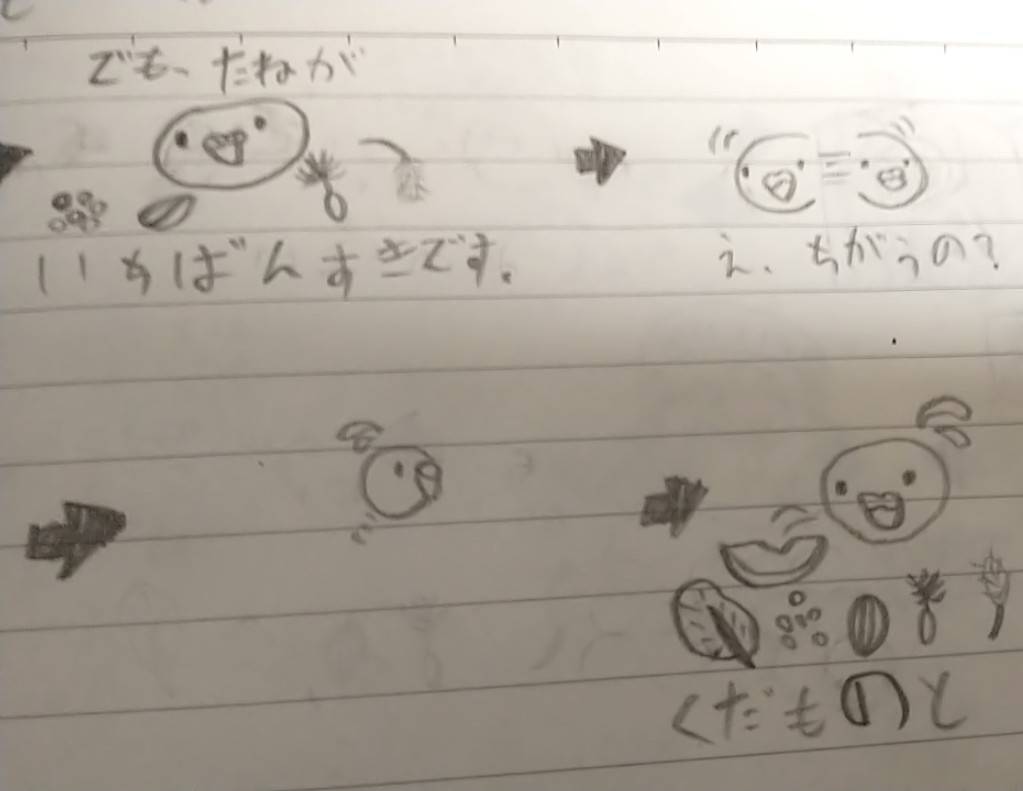 でも、たねが
いちばんすきです。
え、ちがうの?
くだものと